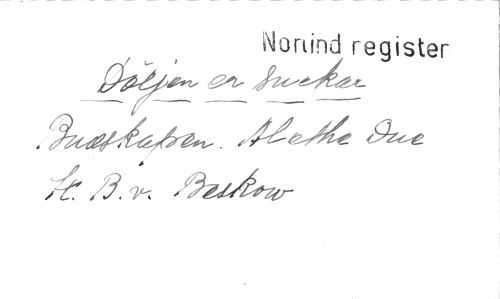 Norlind register
Döljen er suckar
Budskapen. Alethe Due
H. B. v. Beskow